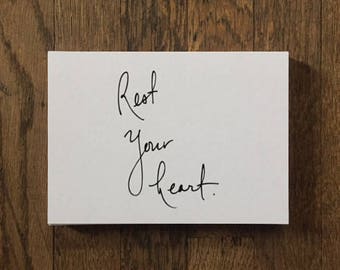 Rest
Your
heart.